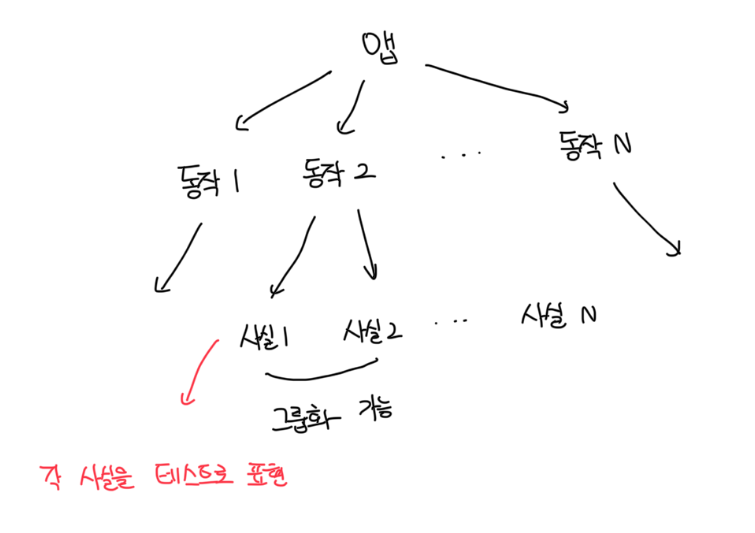 앱
동작 1 동작 2 ... 동작 N
사실 1 사실 2 ... 사실 N
그룹화 가능
각 사실을 테스트로 표현